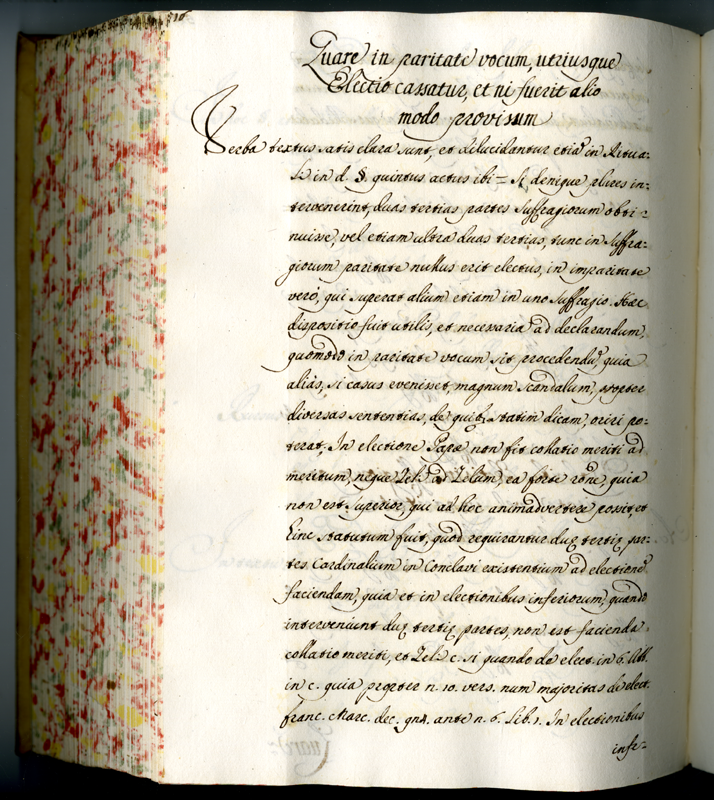 Quare in paritate vocum, utriusque
Electio cassatur, et ni fuerit alio
modo provisum
Verba textus satis clara sunt, et dilucidantur etiã in Ritua:
li in d. §. quintus actus ibi = Si denique plures in:
tervenerint, duas tertias partes Suffragiorum obti:
nuisse, vel etiam ultra duas tertias, tunc in Suffra:
giorum paritate nullus erit electus, in imparitate
verò, qui superat alium etiam in uno Suffragio. Hæc
dispositio fuit utilis, et necessaria ad declarandum,
quomodo in paritate vocum sit procedendũ, quia
aliàs, si casus evenisset, magnum scandalum, propter
diversas sententias, de quibꝫ statim dicam, oriri po:
terat. In electione Papæ non fit collatio meriti ad
meritum, neque Zel: ad Zelum, ea forte rõne, quia
non est superior, qui ad hoc animadvertere possit, et
hinc statutum fuit, quod requirantur duę tertię par:
tes Cardinalium in Conclavi existentium ad electionẽ
faciendam, quia et in electionibus inferiorum, quando
interveniunt duę tertię partes, non est facienda
collatio meriti, et Zel: c. si quando de elect. in 6. Abb.
in c. quia propter n. 10. vers. num majoritas de elect.
franc. Marc. dec. 974. ante n. 6. lib. 1. In electionibus
infe: